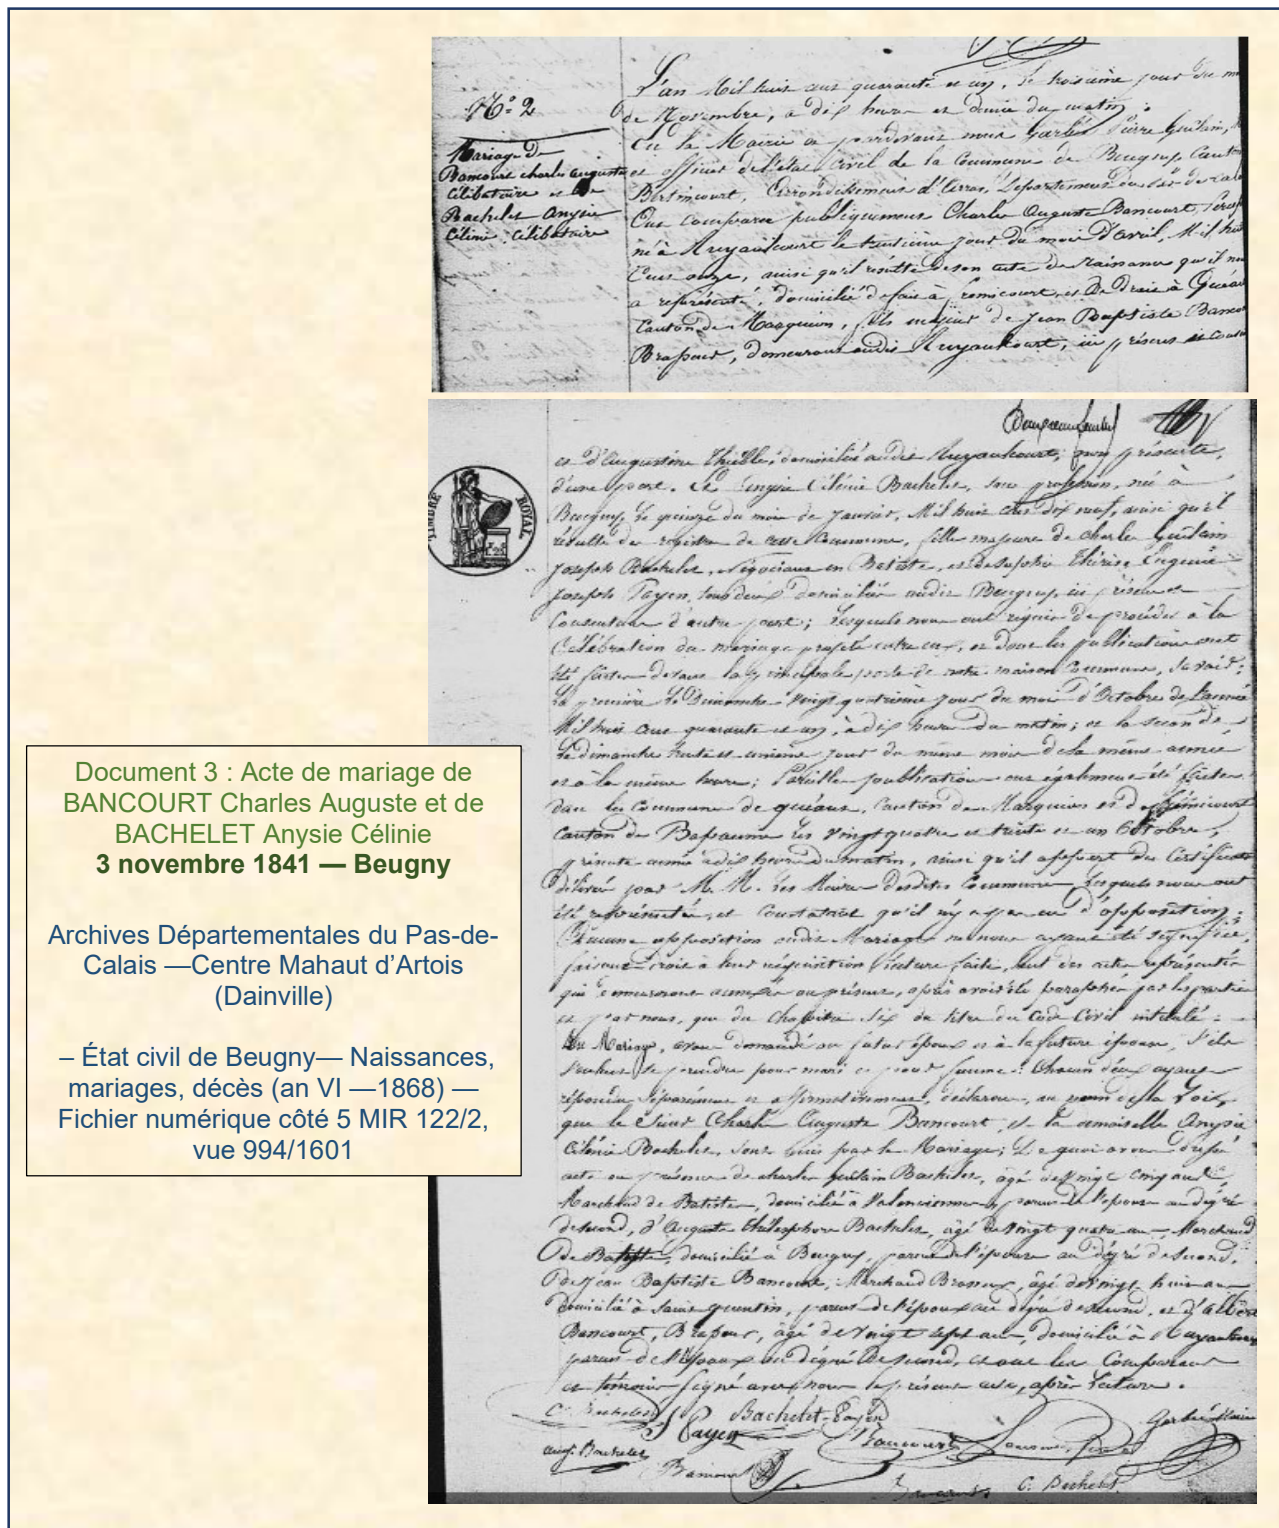 N° 2
Mariage de
Bancourt charles auguste
célibataire et de
Bachelet anysie
célinie célibataire
L'an Mil huit cent quarante et un, le troisième jour du
de Novembre, à dix heures et demie du matin,
En la Mairie et pardevant nous Garbé Pierre Guilain,
et officier de l'état civil de la Commune de Beugny, Canton
Bertincourt, Arrondissement d'Arras, Département du Pas-de-Cal
Ont comparu publiquement Charles Auguste Bancourt,
né à Ruyaulcourt le jour du mois d'avril, Mil hui
Cent onze, ainsi qu'il résulte de son acte de Naissance qu'il n
a représenté, domicilié de fait à fremicourt, et De Droit à Quéan
Canton de Marquion, fils majeur de Jean Baptiste Banco
Brasseur, demeurant audit Ruyaulcourt, ici présent et cons
TIMBRE ROYAL
et d'Augustine domiciliée audit Ruyaulcourt, présente,
d'une part. Et Anysie Célinie Bachelet, sans profession, née à
Beugny, le quinze du mois de Janvier, Mil huit cent dix neuf, ainsi qu'il
résulte du registre de cette Commune, fille majeure de charles Guilain
Joseph Bachelet, Négociant en Batiste, et de Sophie Thérèse Eugénie
Joseph Payen, tous deux domiciliés audit Beugny, ici présents et
Consentans d'autre part; Lesquels nous ont requis de procéder à la
Célébration du mariage projeté entre eux, et dont les publications ont
été faites devant la principale porte de notre maison Commune, Savoir:
La première le Dimanche Vingt quatrième jour du mois d'Octobre de l'année
Mil huit cent quarante et un, à dix heures du matin; et la seconde
le dimanche trente et unième jour du même mois de la même année
et à la même heure; Pareilles publications ont également été faites
dans les Communes de quéant, Canton de Marquion et de frémicourt
Canton de Bapaume les vingt quatre et trente et un Octobre,
présente année à dix heures du matin, ainsi qu'il appert des Certificats
délivrés par M.M. les Maires desdites Communes Lesquels nous ont
été représentés, et Constatant qu'il n'y a pas eu d'opposition;
Aucune opposition audit Mariage ne nous ayant été signifiée,
faisant droit à leur réquisition Lecture faite, tant des actes représentés
qui demeureront annexés au présent, après avoir été paraphés par les parties
et par nous, que du Chapitre Six du titre du Code Civil intitulé:
Du Mariage, avons demandé au futur époux et à la future épouse, s'ils
veulent se prendre pour mari et pour femme: Chacun d'eux ayant
répondu séparément et affirmativement, déclarons, au nom de la Loi,
que le Sieur Charles Auguste Bancourt et la demoiselle Anysie
Célinie Bachelet, sont unis par le Mariage; De quoi avons dressé
acte en présence de charles guilain Bachelet, âgé de vingt cinq ans,
Marchand de Batiste, domicilié à Valenciennes, parent de l'épouse au dégré
de second, d'Auguste Thélesphore Bachelet, âgé de vingt quatre ans, Marchand
de Batiste, domicilié à Beugny, parent de l'épouse au dégré de second,
De Jean Baptiste Bancourt, Marchand Brasseur, âgé de vingt huit ans
domicilié à Saint quentin, parent de l'époux au dégré de second, et d'
Bancourt, Brasseur, âgé de vingt sept ans, domicilié à Ruyaulcourt
parent de l'époux au dégré de second, et ont les Comparans
et témoins signé avec nous le présent acte, après Lecture.
C. Bachelet
S Payen
Bachelet-Payen
Bancourt
Garbé Maire
aug. Bachelet
Bancourt
C. Bachelet
Document 3 : Acte de mariage de
BANCOURT Charles Auguste et de
BACHELET Anysie Célinie
3 novembre 1841 — Beugny
Archives Départementales du Pas-de-
Calais —Centre Mahaut d'Artois
(Dainville)
– État civil de Beugny— Naissances,
mariages, décès (an VI —1868) —
Fichier numérique côté 5 MIR 122/2,
vue 994/1601